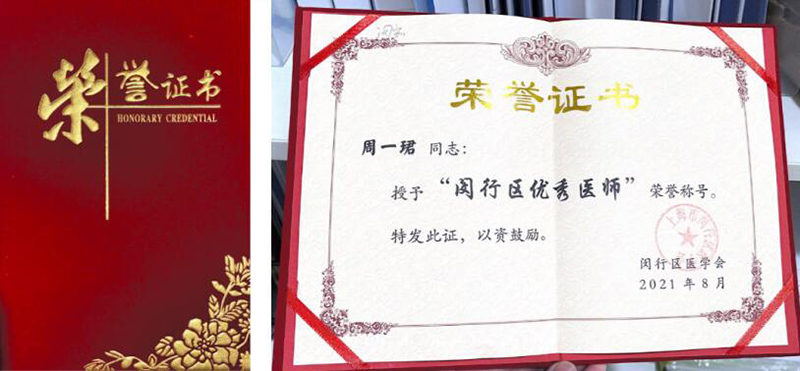 荣誉证书
HONORARY CREDENTIAL
荣誉证书
周一珺 同志：
授予 “闵行区优秀医师” 荣誉称号。
特发此证，以资鼓励。
闵行区医学会
2021 年 8 月